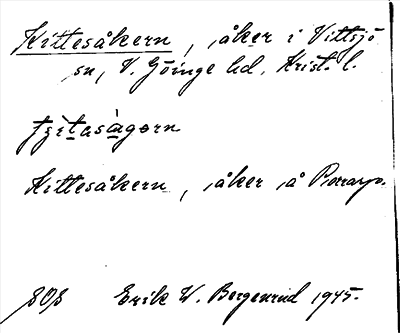 Kittesåkern, åker i Vittsjö
sn, V. Göinge hd, Krist. l.
Kittesåkern, åker å Porrarp.
Erik W. Bergenrud 1945.